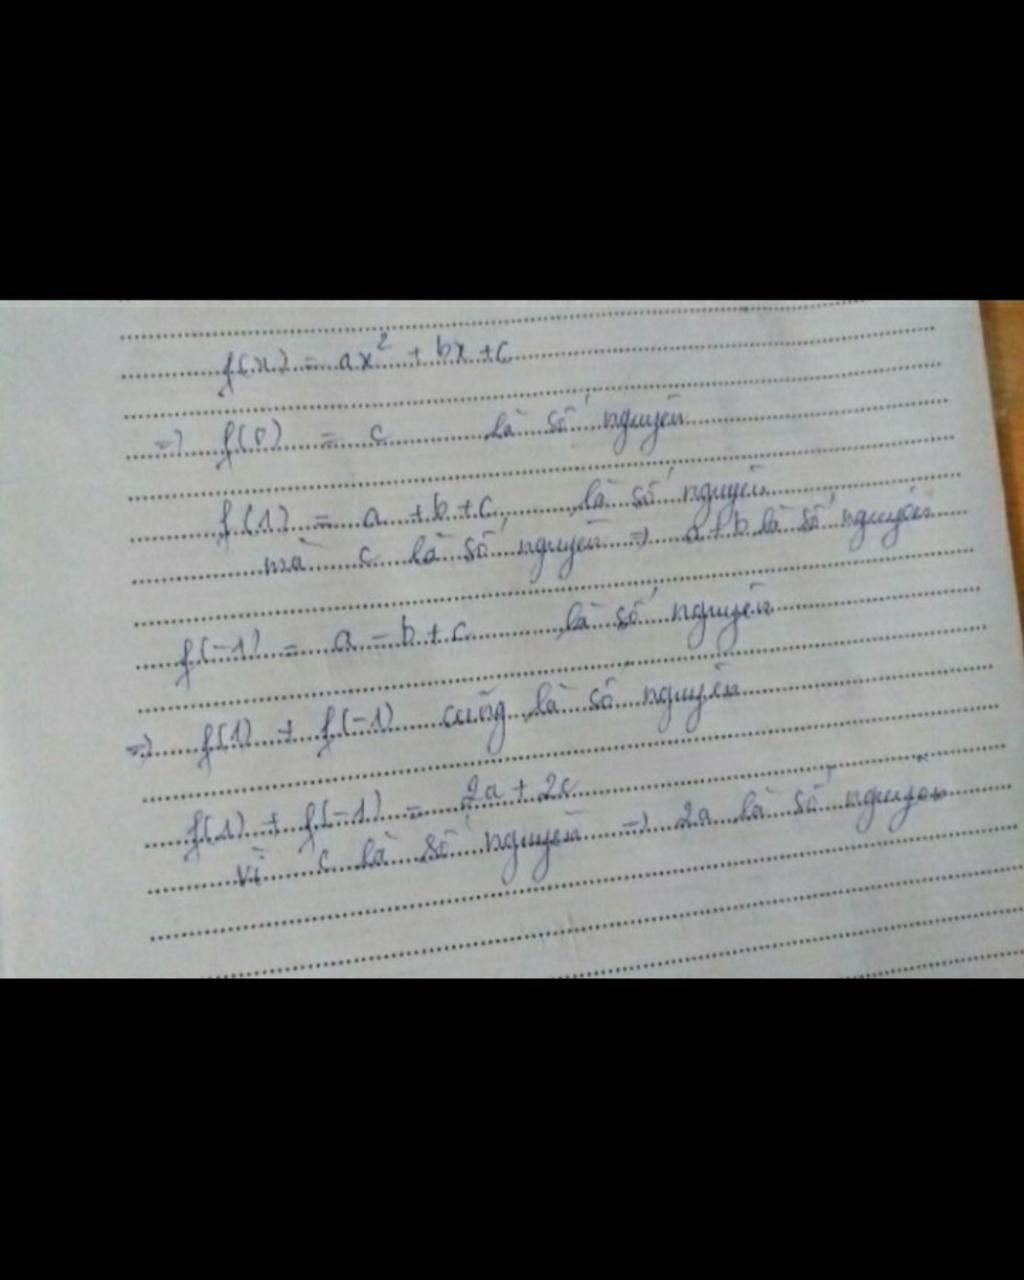 f(x) = ax² + bx + c
=> f(0) = c là số nguyên
f(1) = a + b + c là số nguyên
mà c là số nguyên => a + b là số nguyên
f(-1) = a - b + c là số nguyên
=> f(1) + f(-1) cũng là số nguyên
f(1) + f(-1) = 2a + 2c
vì c là số nguyên => 2a là số nguyên